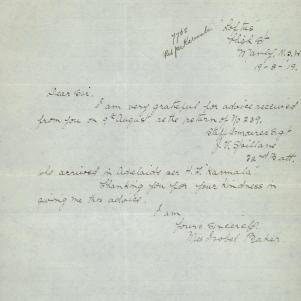 "Loftus"
High St
Manly, N.S.W
19-8-'19.
7785
Ret per Karmala
Dear Sir,
I am very grateful for advice received
from you on 9th August as the return of No 239.
Staff Armourer Sgt
J. V. Spillane
Batt.
who arrived in Adelaide per H.T. "Karmala"
Thanking you for your kindness in
giving me this advice.
I am
Yours Sincerely
Miss Isobel Baker